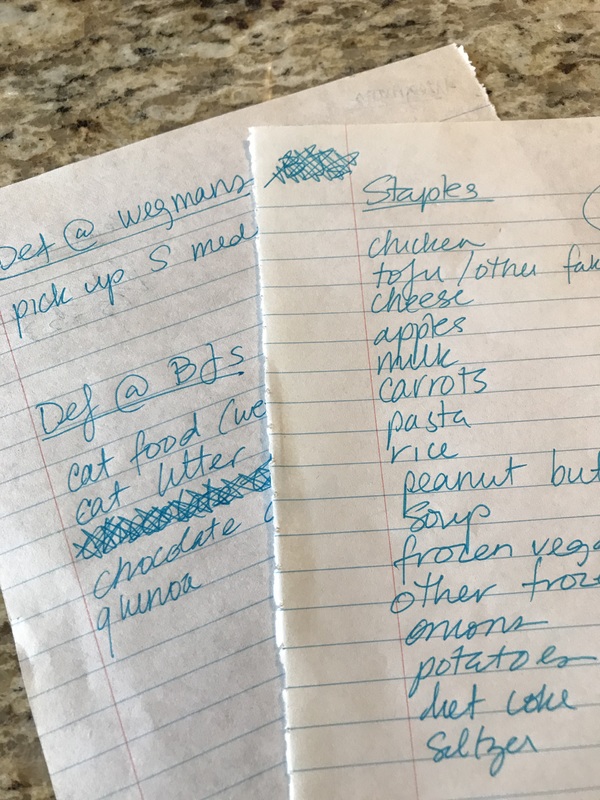 Def @ wegmans
pick up S med
Def @ BJs
cat food (we
cat litter
chocolate
quinoa
Staples
chicken
tofu / other fak
cheese
apples
milk
carrots
pasta
rice
peanut but
soup
frozen vegg
other froz
onions
potatoes
diet coke
seltzer